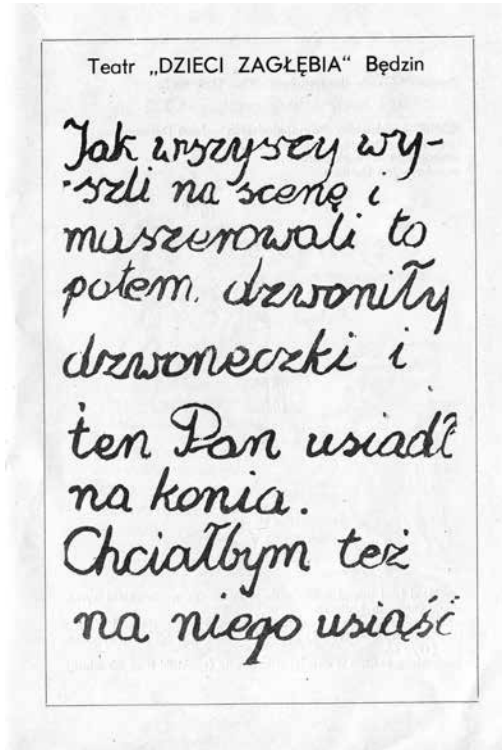 Teatr „DZIECI ZAGŁĘBIA" Będzin
Jak wszyscy wy-
szli na scenę i
maszerowali to
potem dzwoniły
dzwoneczki i
ten Pan usiadł
na konia.
Chciałbym też
na niego usiąść